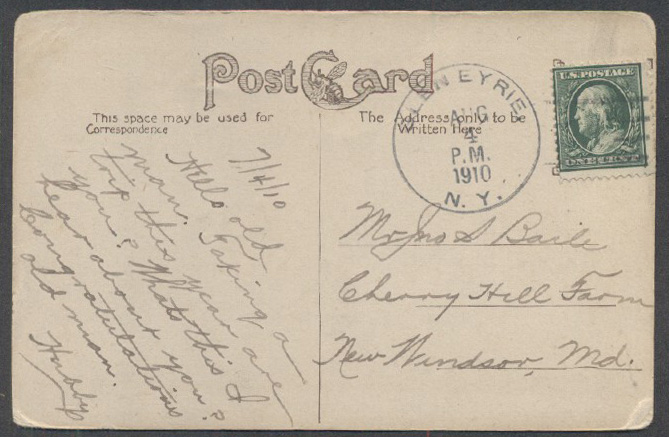 Post Card
This space may be used for
Correspondence
The Address only to be
Written Here
GLEN EYRIE
AUG
4
P.M.
1910
N. Y.
U.S. POSTAGE
ONE CENT
7/4/10
Hello old
man. Taking a
trip this year are
you? Whats this I
hear about you?
Congratulations
old man.
Mr Jno S Baile
Cherry Hill Farm
New Windsor, Md.